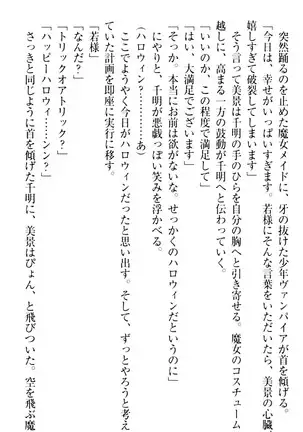 突然踊るのを止めた魔女メイドに、牙の抜けた少年ヴァンパイアが首を傾げる。
「今日は、幸せがいっぱいすぎます。若様にそんな言葉をいただいたら、美景の心臓、
嬉しすぎて破裂してしまいます」
そう言って美景は千明の手のひらを自分の胸へと引き寄せる。魔女のコスチューム
越しに、高まる一方の鼓動が千明へと伝わっていく。
「いいのか、この程度で満足して」
「はい、大満足でございます」
「そっか。本当にお前は欲がないな。せっかくのハロウィンだというのに」
にやりと、千明が悪戯っぽい笑みを浮かべる。
(ハロウィン?…………あ)
ここでようやく今日がハロウィンだったと思い出す。そして、ずっとやろうと考え
ていた計画を即座に実行に移す。
「若様」
「なんだ?」
「トリックオアトリック?」
「ハッピーハロウィ……ンン?」
さっきと同じように首を傾げた千明に、美景はぴょん、と飛びついた。空を飛ぶ魔